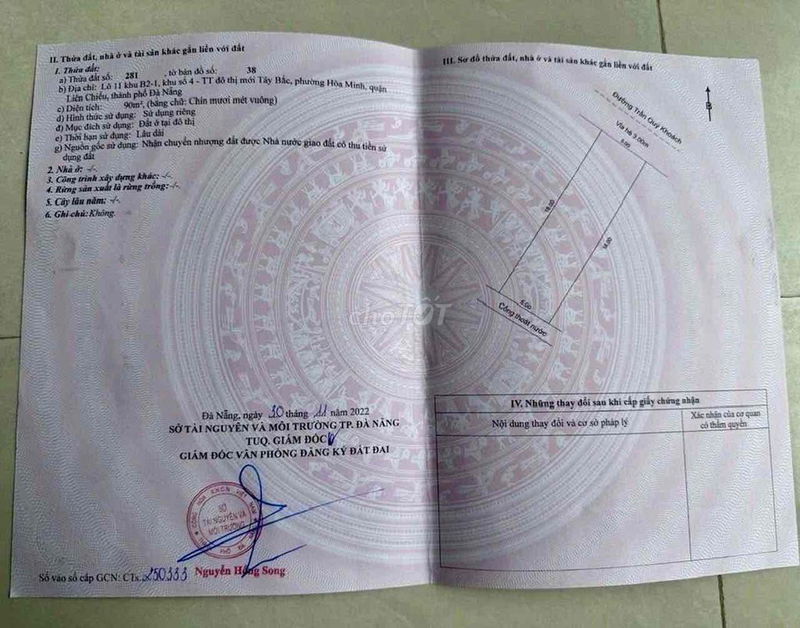 II. Thửa đất, nhà ở và tài sản khác gắn liền với đất
1. Thửa đất:
a) Thửa đất số: 281 tờ bản đồ số: 38
b) Địa chỉ: Lô 11 khu B2-1, khu số 4 - TT đô thị mới Tây Bắc, phường Hòa Minh, quận
Liên Chiểu, thành phố Đà Nẵng
c) Diện tích: 90m², (bằng chữ: Chín mươi mét vuông)
d) Hình thức sử dụng: Sử dụng riêng
đ) Mục đích sử dụng: Đất ở tại đô thị
e) Thời hạn sử dụng: Lâu dài
g) Nguồn gốc sử dụng: Nhận chuyển nhượng đất được Nhà nước giao đất có thu tiền sử
dụng đất
2. Nhà ở: -/-
3. Công trình xây dựng khác: -/-
4. Rừng sản xuất là rừng trồng: -/-
5. Cây lâu năm: -/-
6. Ghi chú: Không.
Đà Nẵng, ngày 30 tháng 11 năm 2022
SỞ TÀI NGUYÊN VÀ MÔI TRƯỜNG TP. ĐÀ NẴNG
TUQ. GIÁM ĐỐC
GIÁM ĐỐC VĂN PHÒNG ĐĂNG KÝ ĐẤT ĐAI
SỞ
TÀI NGUYÊN VÀ
MÔI TRƯỜNG
Nguyễn Hồng Song
Số vào sổ cấp GCN: CTs 250333
III. Sơ đồ thửa đất, nhà ở và tài sản khác gắn liền với đất
B
Đường Trần Quý Khoách
Vỉa hè 3.00m
5.00
18.00
18.00
5.00
Cống thoát nước
chợTỐT
IV. Những thay đổi sau khi cấp giấy chứng nhận
Nội dung thay đổi và cơ sở pháp lý
Xác nhận của cơ quan
có thẩm quyền